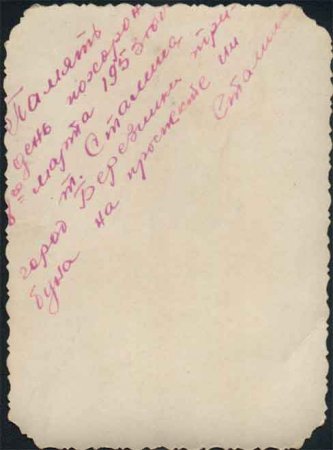 Память
день похорон
марта 1953 год
т. Сталина
город Березники три-
буна на проспекте им
Сталина